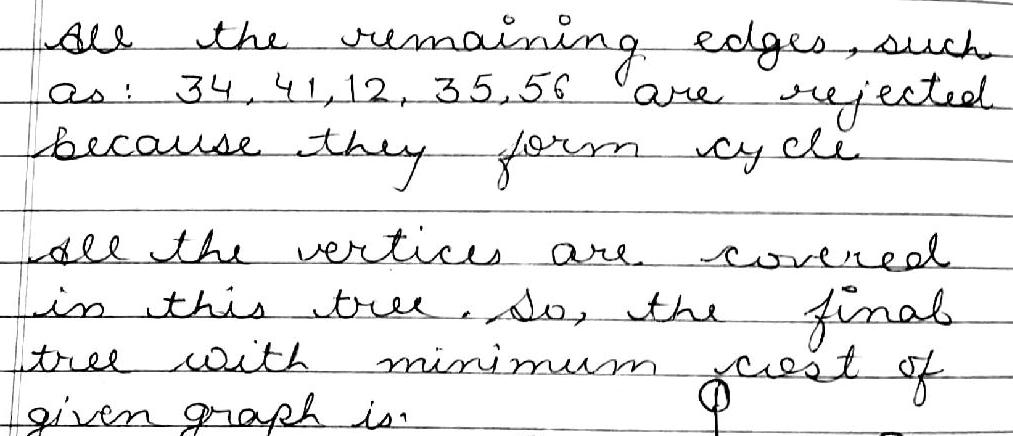 All the remaining edges, such
as: 34, 41, 12, 35, 56 are rejected
because they form cycle
All the vertices are covered
in this tree. So, the final
tree with minimum cost of
given graph is:
1